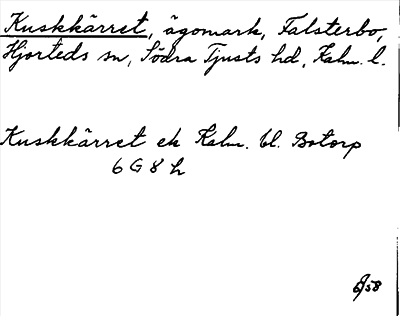 Kuskkärret, ägomark, Falsterbo,
Hjorteds sn, Södra Tjusts hd, Kalm. l.
Kuskkärret ek Kalm. bl. Botorp
6 G 8 h
6/58